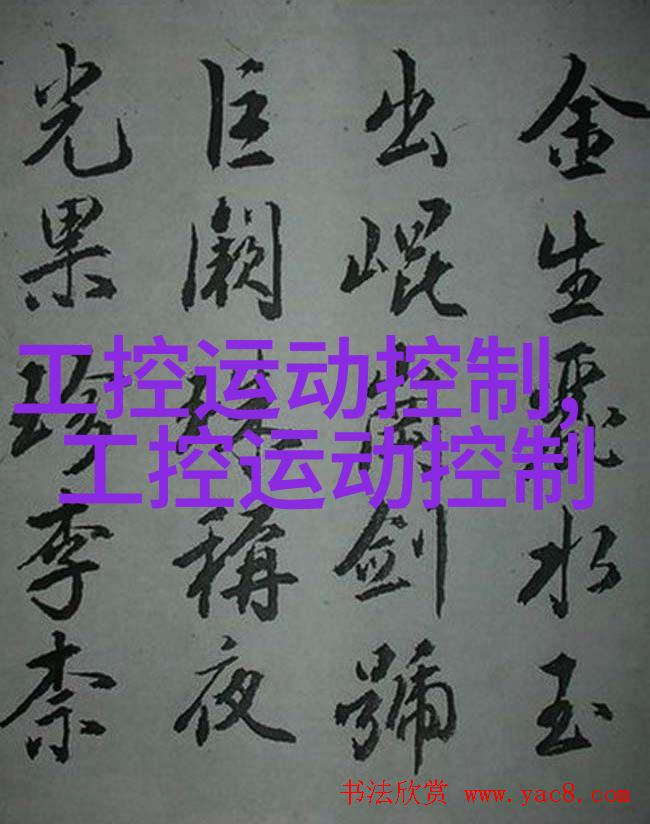 金生麗水玉
出崐崗劍號
巨闕珠稱夜
光果珍李柰
工控运动控制,
工控运动控制
书法欣赏 www.yac8.com